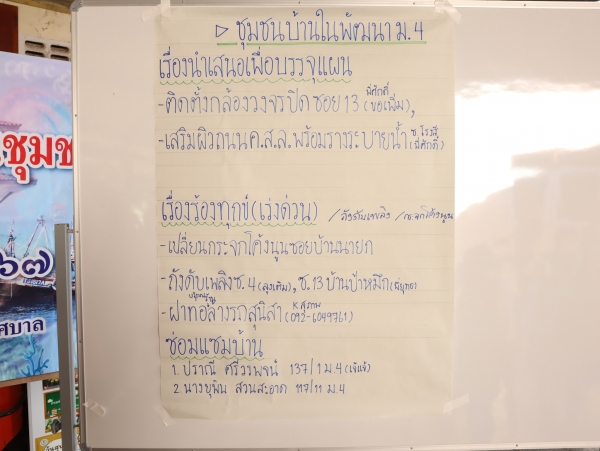 ▷ ชุมชนบ้านในพัฒนา ม.4
เรื่องนำเสนอเพื่อบรรจุแผน
- ติดตั้งกล้องวงจรปิดซอย 13 (พี่ศักดิ์ ขอเพิ่ม),
- เสริมผิวถนน ค.ส.ล. พร้อมรางระบายน้ำ (ซ.โรงสี พี่ศักดิ์)
เรื่องร้องทุกข์ (เร่งด่วน) /ถังดับเพลิง /กระจกโค้งนูน
- เปลี่ยนกระจกโค้งนูนซอยบ้านนายก
- ถังดับเพลิง ซ.4 (ลุงเติม), ซ.13 บ้านป้าหมึก
- ฝาท่อล้างรถสุนิสา (092-6049761)
ซ่อมแซมบ้าน
1. ปราณี ศรีวรพจน์ 137/1 ม.4 (เจ๊แจ๋)
2. นางยุพิน สวนสะอาด 117/11 ม.4
ชุมช
๖๗
ศบาล